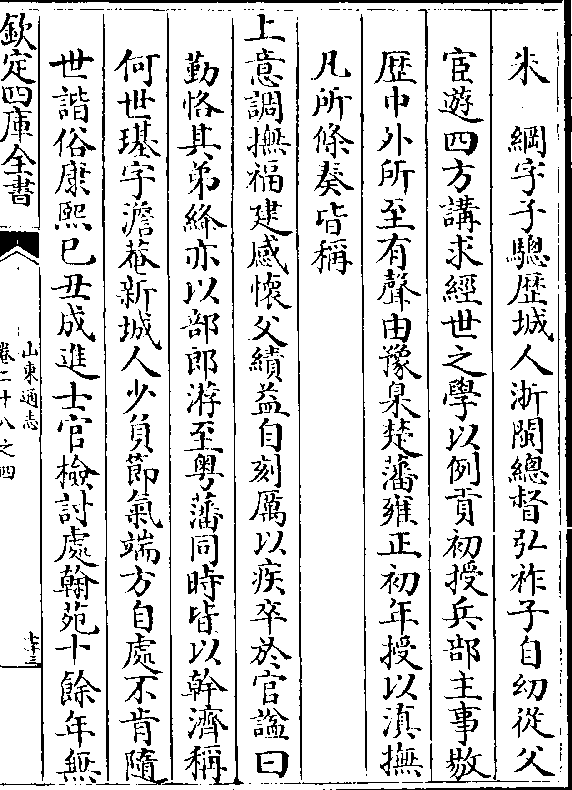 朱 綱字子驄歴城人浙閩總督弘祚子自幼從父
宦遊四方講求經世之學以例貢初授兵部主事敭
歴中外所至有聲由豫臬楚藩雍正初年授以滇撫
凡所條奏皆稱
上意調撫福建感懷父績益自刻厲以疾卒於官諡曰
勤恪其弟絳亦以部郎游至粤藩同時皆以幹濟稱
何世璂字澹菴新城人少負節氣端方自處不肯隨
世諧俗康熙己丑成進士官檢討處翰苑十餘年無
欽定四庫全書
山東通志
卷二十八之四